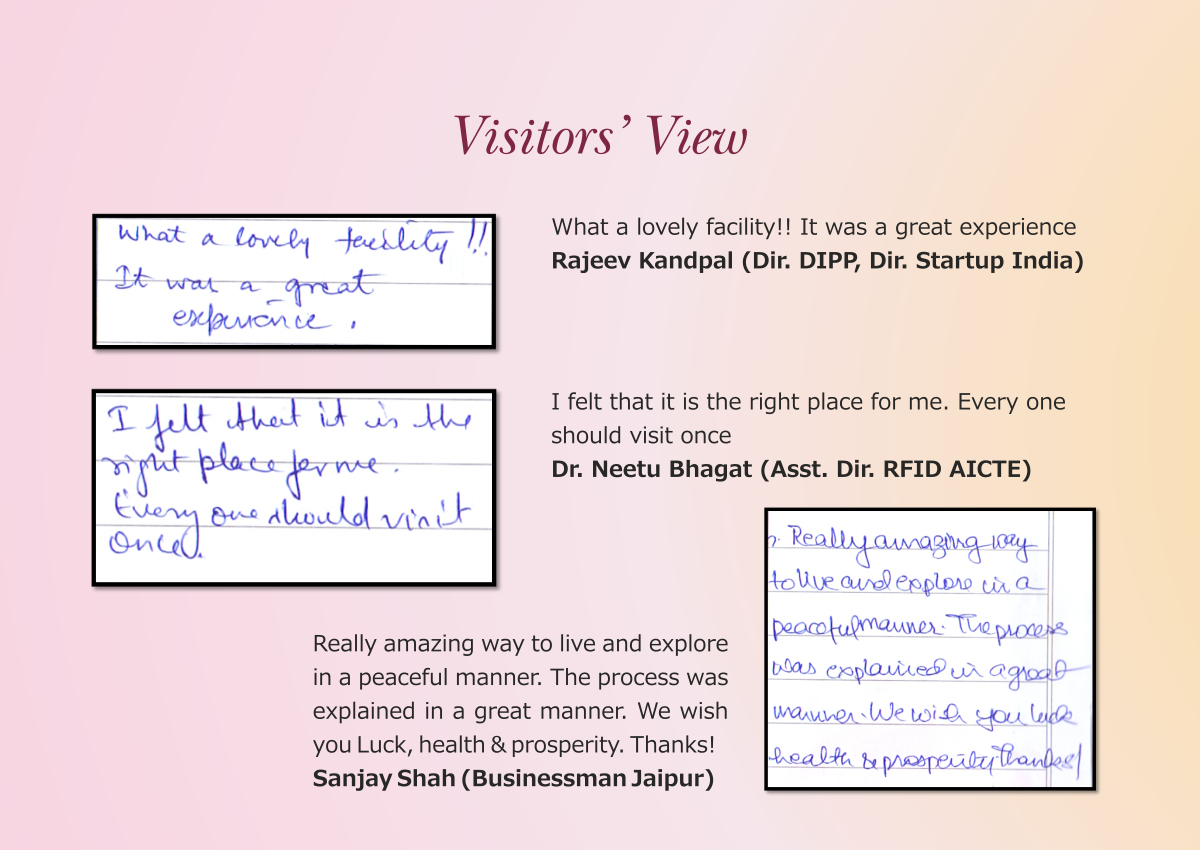 Visitors’ View
What a lovely facility!!
It was a great
experience.
What a lovely facility!! It was a great experience
Rajeev Kandpal (Dir. DIPP, Dir. Startup India)
I felt that it is the
right place for me.
Every one should visit
once.
I felt that it is the right place for me. Every one
should visit once
Dr. Neetu Bhagat (Asst. Dir. RFID AICTE)
Really amazing way
to live and explore in a
peaceful manner. The process
was explained in a great
manner. We wish you luck
health & prosperity Thanks!
Really amazing way to live and explore
in a peaceful manner. The process was
explained in a great manner. We wish
you Luck, health & prosperity. Thanks!
Sanjay Shah (Businessman Jaipur)